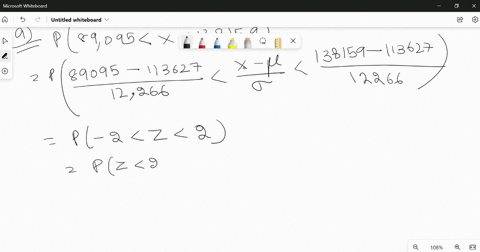 Microsoft Whiteboard
Untitled whiteboard
a) P(89,095 < x
= P(89095 - 113627 / 12,266 < x - μ / σ < 138159 - 113627 / 12266)
= P(-2 < Z < 2)
= P(Z < 2
108%